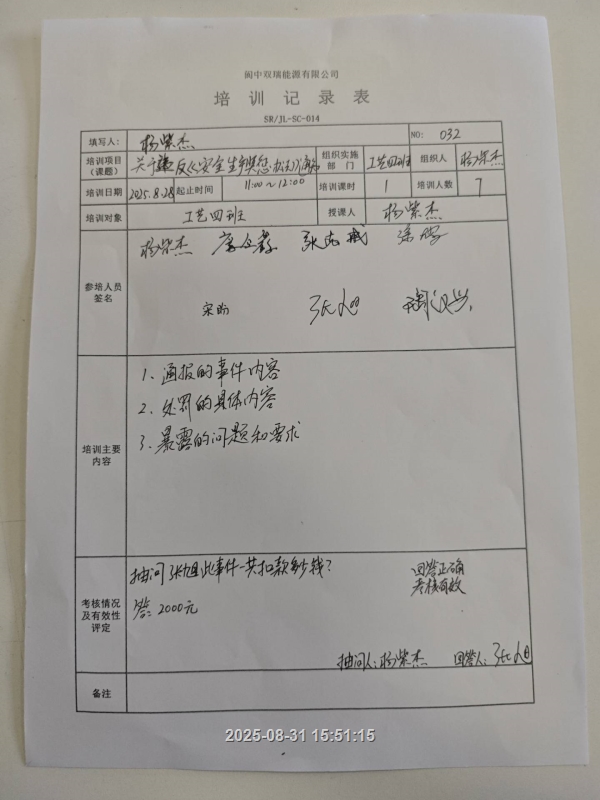 阆中双瑞能源有限公司
培训记录表
SR/JL-SC-014
填写人: 杨紫杰 NO: 032
培训项目(课题) 关于 反 安全生产奖惩 通知 组织实施部门 工艺四班 组织人 杨紫杰
培训日期 2025.8.28 起止时间 11:00~12:00 培训课时 1 培训人数 7
培训对象 工艺四班 授课人 杨紫杰
参培人员签名 杨紫杰
宋盼
培训主要内容
1、通报的事件内容
2、处罚的具体内容
3、暴露的问题和要求
考核情况及有效性评定
抽问张旭此事件一共扣款多少钱? 回答正确
答: 2000元 考核有效
抽问人: 杨紫杰 回答人: 张旭
备注
2025-08-31 15:51:15